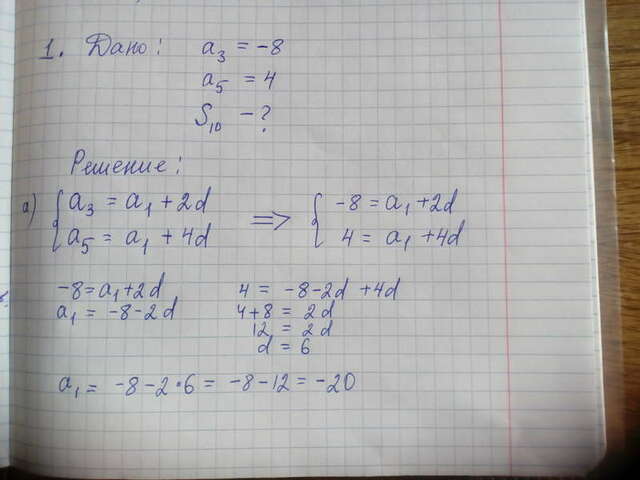 1. Дано: a₃ = -8
a₅ = 4
S₁₀ - ?
Решение:
а) { a₃ = a₁ + 2d => { -8 = a₁ + 2d
a₅ = a₁ + 4d 4 = a₁ + 4d
-8 = a₁ + 2d 4 = -8 - 2d + 4d
a₁ = -8 - 2d 4 + 8 = 2d
12 = 2d
d = 6
a₁ = -8 - 2 · 6 = -8 - 12 = -20